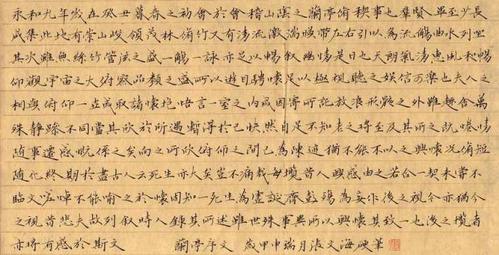 永和九年歲在癸丑暮春之初會於會稽山陰之蘭亭脩稧事也羣賢畢至少長
咸集此地有崇山峻領茂林脩竹又有清流激湍暎帶左右引以為流觴曲水列坐
其次雖無絲竹管弦之盛一觴一詠亦足以暢敘幽情是日也天朗氣清惠風和暢
仰觀宇宙之大俯察品類之盛所以遊目騁懷足以極視聽之娛信可樂也夫人之
相與俯仰一世或取諸懷抱悟言一室之內或因寄所託放浪形骸之外雖趣舍萬
殊靜躁不同當其欣於所遇暫得於己快然自足不知老之將至及其所之既惓情
隨事遷感慨係之矣向之所欣俯仰之間已為陳迹猶不能不以之興懷況脩短
隨化終期於盡古人云死生亦大矣豈不痛哉每攬昔人興感之由若合一契未嘗不
臨文嗟悼不能喻之於懷固知一死生為虛誕齊彭殤為妄作後之視今亦猶今
之視昔悲夫故列敘時人錄其所述雖世殊事異所以興懷其致一也後之攬者
亦將有感於斯文 蘭亭序文 歲甲申瑞月張文海硬筆